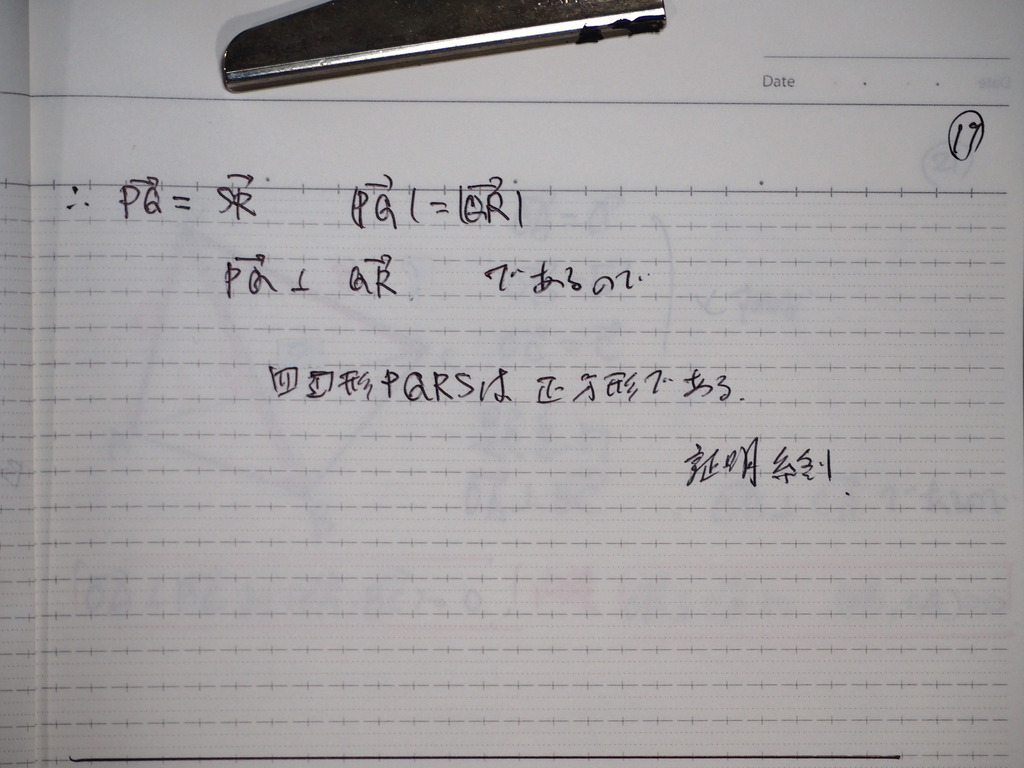 Date
⑰
∴ PQ→ = SR→ |PQ→| = |QR→|
PQ→ ⊥ QR→ であるので
四辺形PQRSは正方形である.
証明終り.